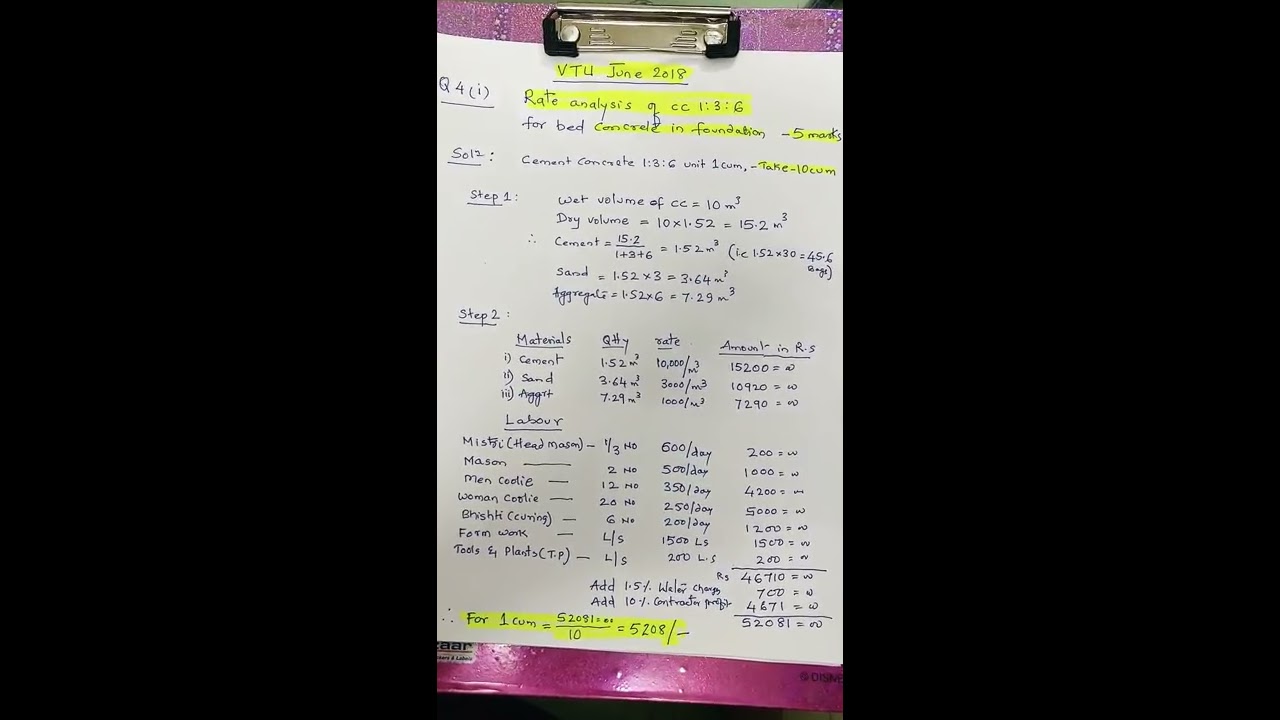 VTU June 2018
Q4(i) Rate analysis of cc 1:3:6
for bed concrete in foundation - 5 marks
Sol2: Cement concrete 1:3:6 unit 1cum, - Take - 10cum
Step 1: Wet volume of cc = 10 m³
Dry volume = 10×1.52 = 15.2 m³
∴ Cement = 15.2/1+3+6 = 1.52 m³ (i.e 1.52×30 = 45.6 Bags)
Sand = 1.52 × 3 = 3.64 m³
Aggregate = 1.52×6 = 7.29 m³
Step 2:
Materials Qtty rate Amount in R.s
i) Cement 1.52 m³ 10,000/m³ 15200 = 00
ii) Sand 3.64 m³ 3000/m³ 10920 = 00
iii) Aggrt 7.29 m³ 1000/m³ 7290 = 00
Labour
Mistri (Head mason) - 1/3 No 600/day 200 = 00
Mason — 2 No 500/day 1000 = 00
Men Coolie — 12 No 350/day 4200 = 00
Woman Coolie — 20 No 250/day 5000 = 00
Bhishti (curing) — 6 No 200/day 1200 = 00
Form work — L/S 1500 LS 1500 = 00
Tools & Plants (T.P) — L/S 200 L.S 200 = 00
Rs 46710 = 00
Add 1.5% Water charges 700 = 00
Add 10% Contractor profit 4671 = 00
52081 = 00
∴ For 1 cum = 52081=00/10 = 5208/-
zaar
© DISNE